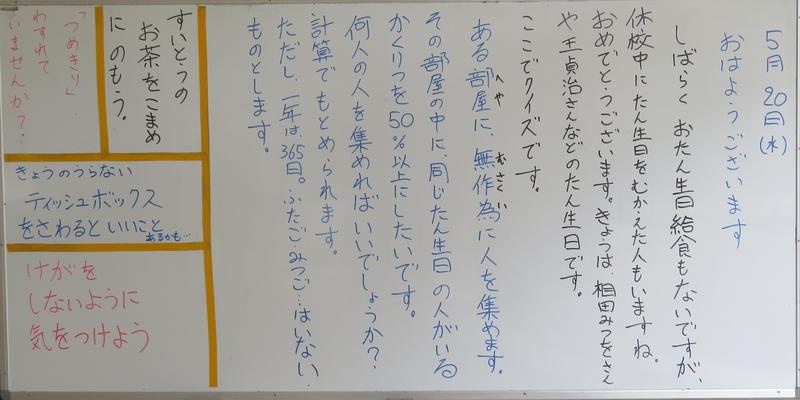 5月20日(水)
おはようございます
しばらくおたん生日給食もないですが、
休校中にたん生日をむかえた人もいますね。
おめでとうございます。きょうは、相田みつをさん
や王貞治さんなどのたん生日です。
ここでクイズです。
ある部屋に、無作為に人を集めます。
へや
むさくい
その部屋の中に、同じたん生日の人がいる
かくりつを50%以上にしたいです。
何人の人を集めればいいでしょうか?
計算でもとめられます。
ただし、一年は、365日。ふたご・みつご…はいない
ものとします。
すいとうの
お茶をこまめ
にのもう。
「つめきり」
わすれて
いませんか?…
きょうのうらない
ティッシュボックス
をさわるといいこと
あるかも…
けがを
しないように
気をつけよう